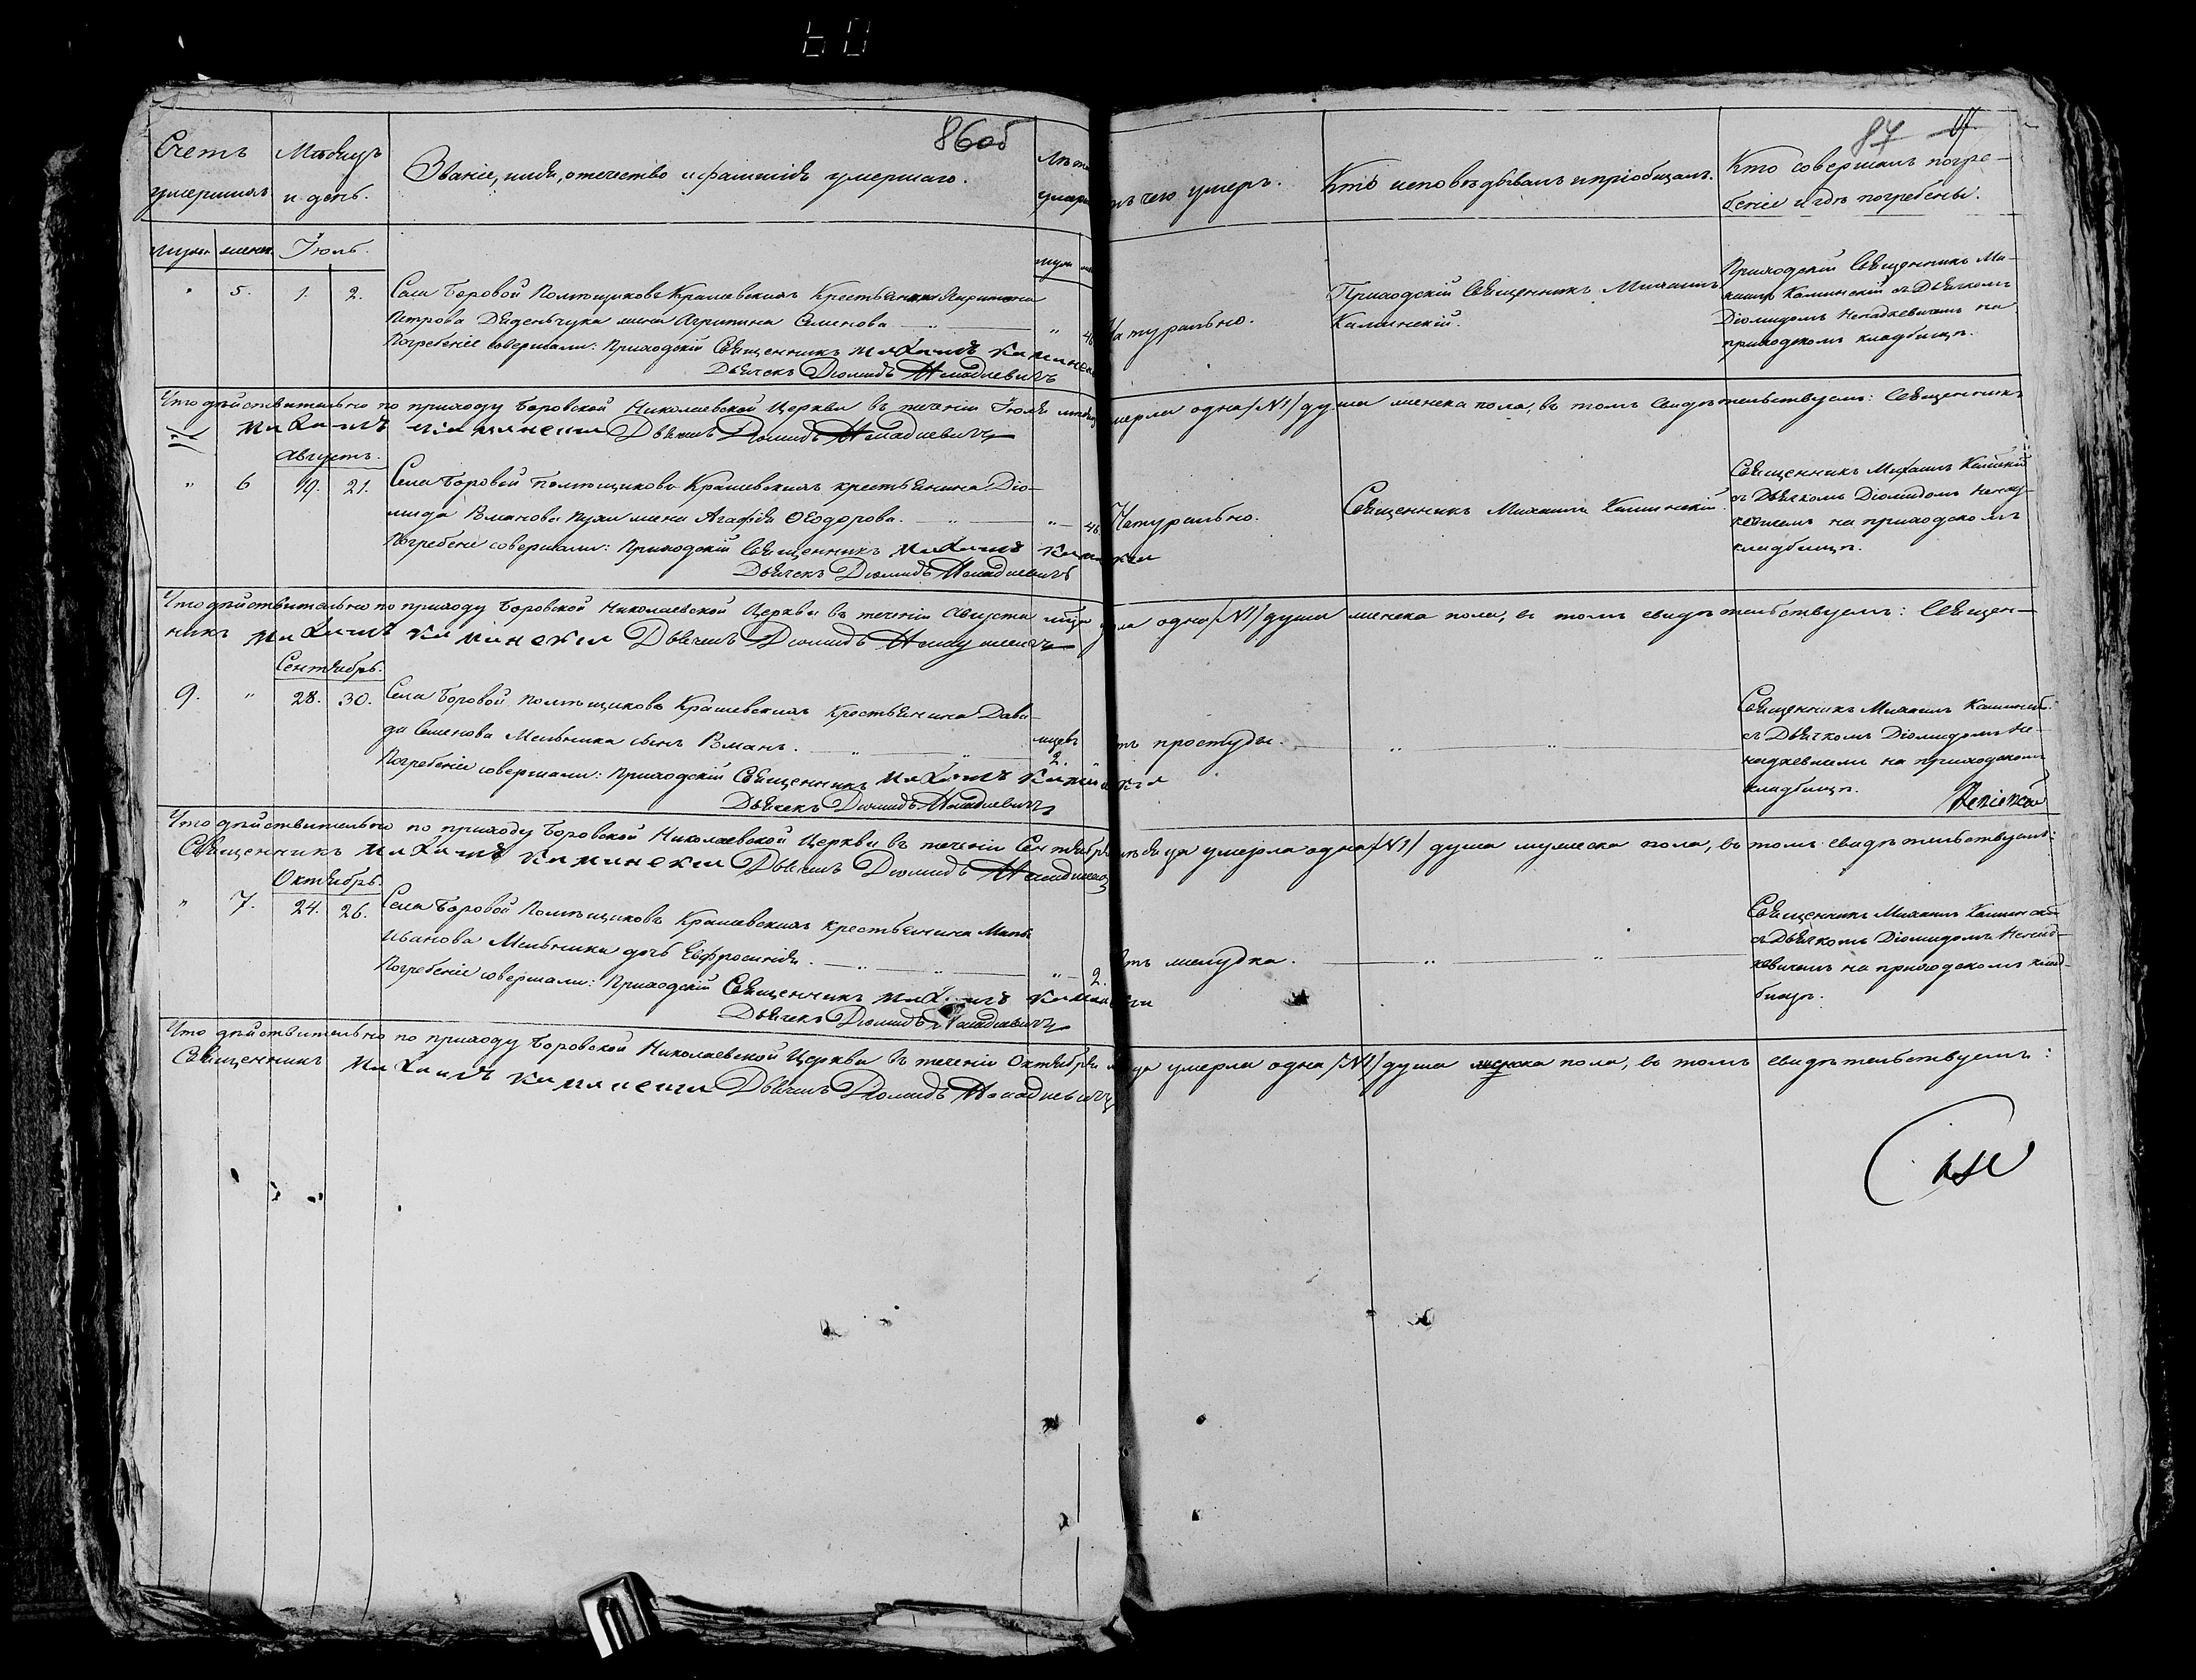 60
86об
87
Счетъ умершихъ
Мѣсяцъ и день.
Званіе, имя, отечество и фамилія умершаго.
Лѣта
чего умеръ.
Кто исповѣдывалъ и пріобщалъ.
Кто совершалъ погре-
беніе и гдѣ погребены.
муж. женс. Іюль.
5. 1. 2. Села Боровой Помѣщиковъ Крашевскихъ Крестьянина
Петрова Дяденьчука жена Агрипина Семенова
Погребеніе совершали: Приходскій Священникъ Михаилъ Каминскій
Дьячекъ Діомидъ Ненадкевичъ
Натурально.
Приходскій Священникъ Михаилъ
Каминскій.
Приходскій Священникъ Ми-
хаилъ Каминскій съ Дьячкомъ
Діомидомъ Ненадкевичемъ на
приходскомъ кладбищѣ.
Что дѣйствительно по приходу Боровской Николаевской Церкви въ теченіи Іюля умерла одна /№1/ душа женска пола, въ томъ свидѣтельствуемъ: Священникъ
Михаилъ Каминскій Дьячекъ Діомидъ Ненадкевичъ
Августъ.
" 6 19. 21. Села Боровой Помѣщиковъ Крашевскихъ крестьянина Діо-
мида Романова жена Агафія Ѳеодорова.
Погребеніе совершали: Приходскій Священникъ Михаилъ Каминскій
Дьячекъ Діомидъ Ненадкевичъ
Натурально.
Священникъ Михаилъ Каминскій.
Священникъ Михаилъ Каминскій
съ Дьячкомъ Діомидомъ Ненад-
кевичемъ на приходскомъ
кладбищѣ.
Что дѣйствительно по приходу Боровской Николаевской Церкви въ теченіи Августа одна /№1/ душа женска пола, въ томъ свидѣтельствуемъ: Священ-
никъ Михаилъ Каминскій Дьячекъ Діомидъ Ненадкевичъ
Сентябрь.
9. " 28. 30. Села Боровой Помѣщиковъ Крашевскихъ Крестьянина Дави-
да Семенова Мельника сынъ Романъ. 2.
Погребеніе совершали: Приходскій Священникъ Михаилъ Каминскій
Дьячекъ Діомидъ Ненадкевичъ
отъ простуды.
Священникъ Михаилъ Каминскій
съ Дьячкомъ Діомидомъ Не-
надкевичемъ на приходскомъ
кладбищѣ.
Что дѣйствительно по приходу Боровской Николаевской Церкви въ теченіи Сентября мѣсяца умерла одна /№1/ душа мужеска пола, въ томъ свидѣтельствуемъ:
Священникъ Михаилъ Каминскій Дьячекъ Діомидъ Ненадкевичъ
Октябрь.
" 7. 24. 26. Села Боровой Помѣщиковъ Крашевскихъ крестьянина
Иванова Мельника дочь Евфросинія. 2.
Погребеніе совершали: Приходскій Священникъ Михаилъ Каминскій
Дьячекъ Діомидъ Ненадкевичъ
отъ желудка.
Священникъ Михаилъ Каминскій
съ Дьячкомъ Діомидомъ Ненад-
кевичемъ на приходскомъ клад-
бищѣ.
Что дѣйствительно по приходу Боровской Николаевской Церкви въ теченіи Октября умерла одна /№1/ душа женска пола, въ томъ свидѣтельствуемъ:
Священникъ Михаилъ Каминскій Дьячекъ Діомидъ Ненадкевичъ